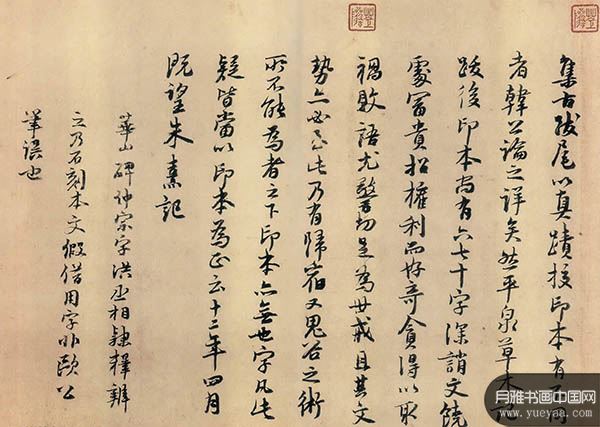 集古跋尾以真蹟校印本有不同
者韓公論之詳矣然平泉草木記
跋後印本尚有六七十字深誚文饒
處富貴招權利而好奇貪得以取
禍敗語尤警切足為世戒且其文
勢亦必至此乃有歸宿又鬼谷之術
所不能為者之下印本亦無也字凡此
疑皆當以印本為正云十二年四月
既望朱熹記
華山碑仲宗字洪丞相隸釋辨
之乃石刻本文假借用字非歐公
筆誤也
月雅书画中国网
www.yueyaa.com